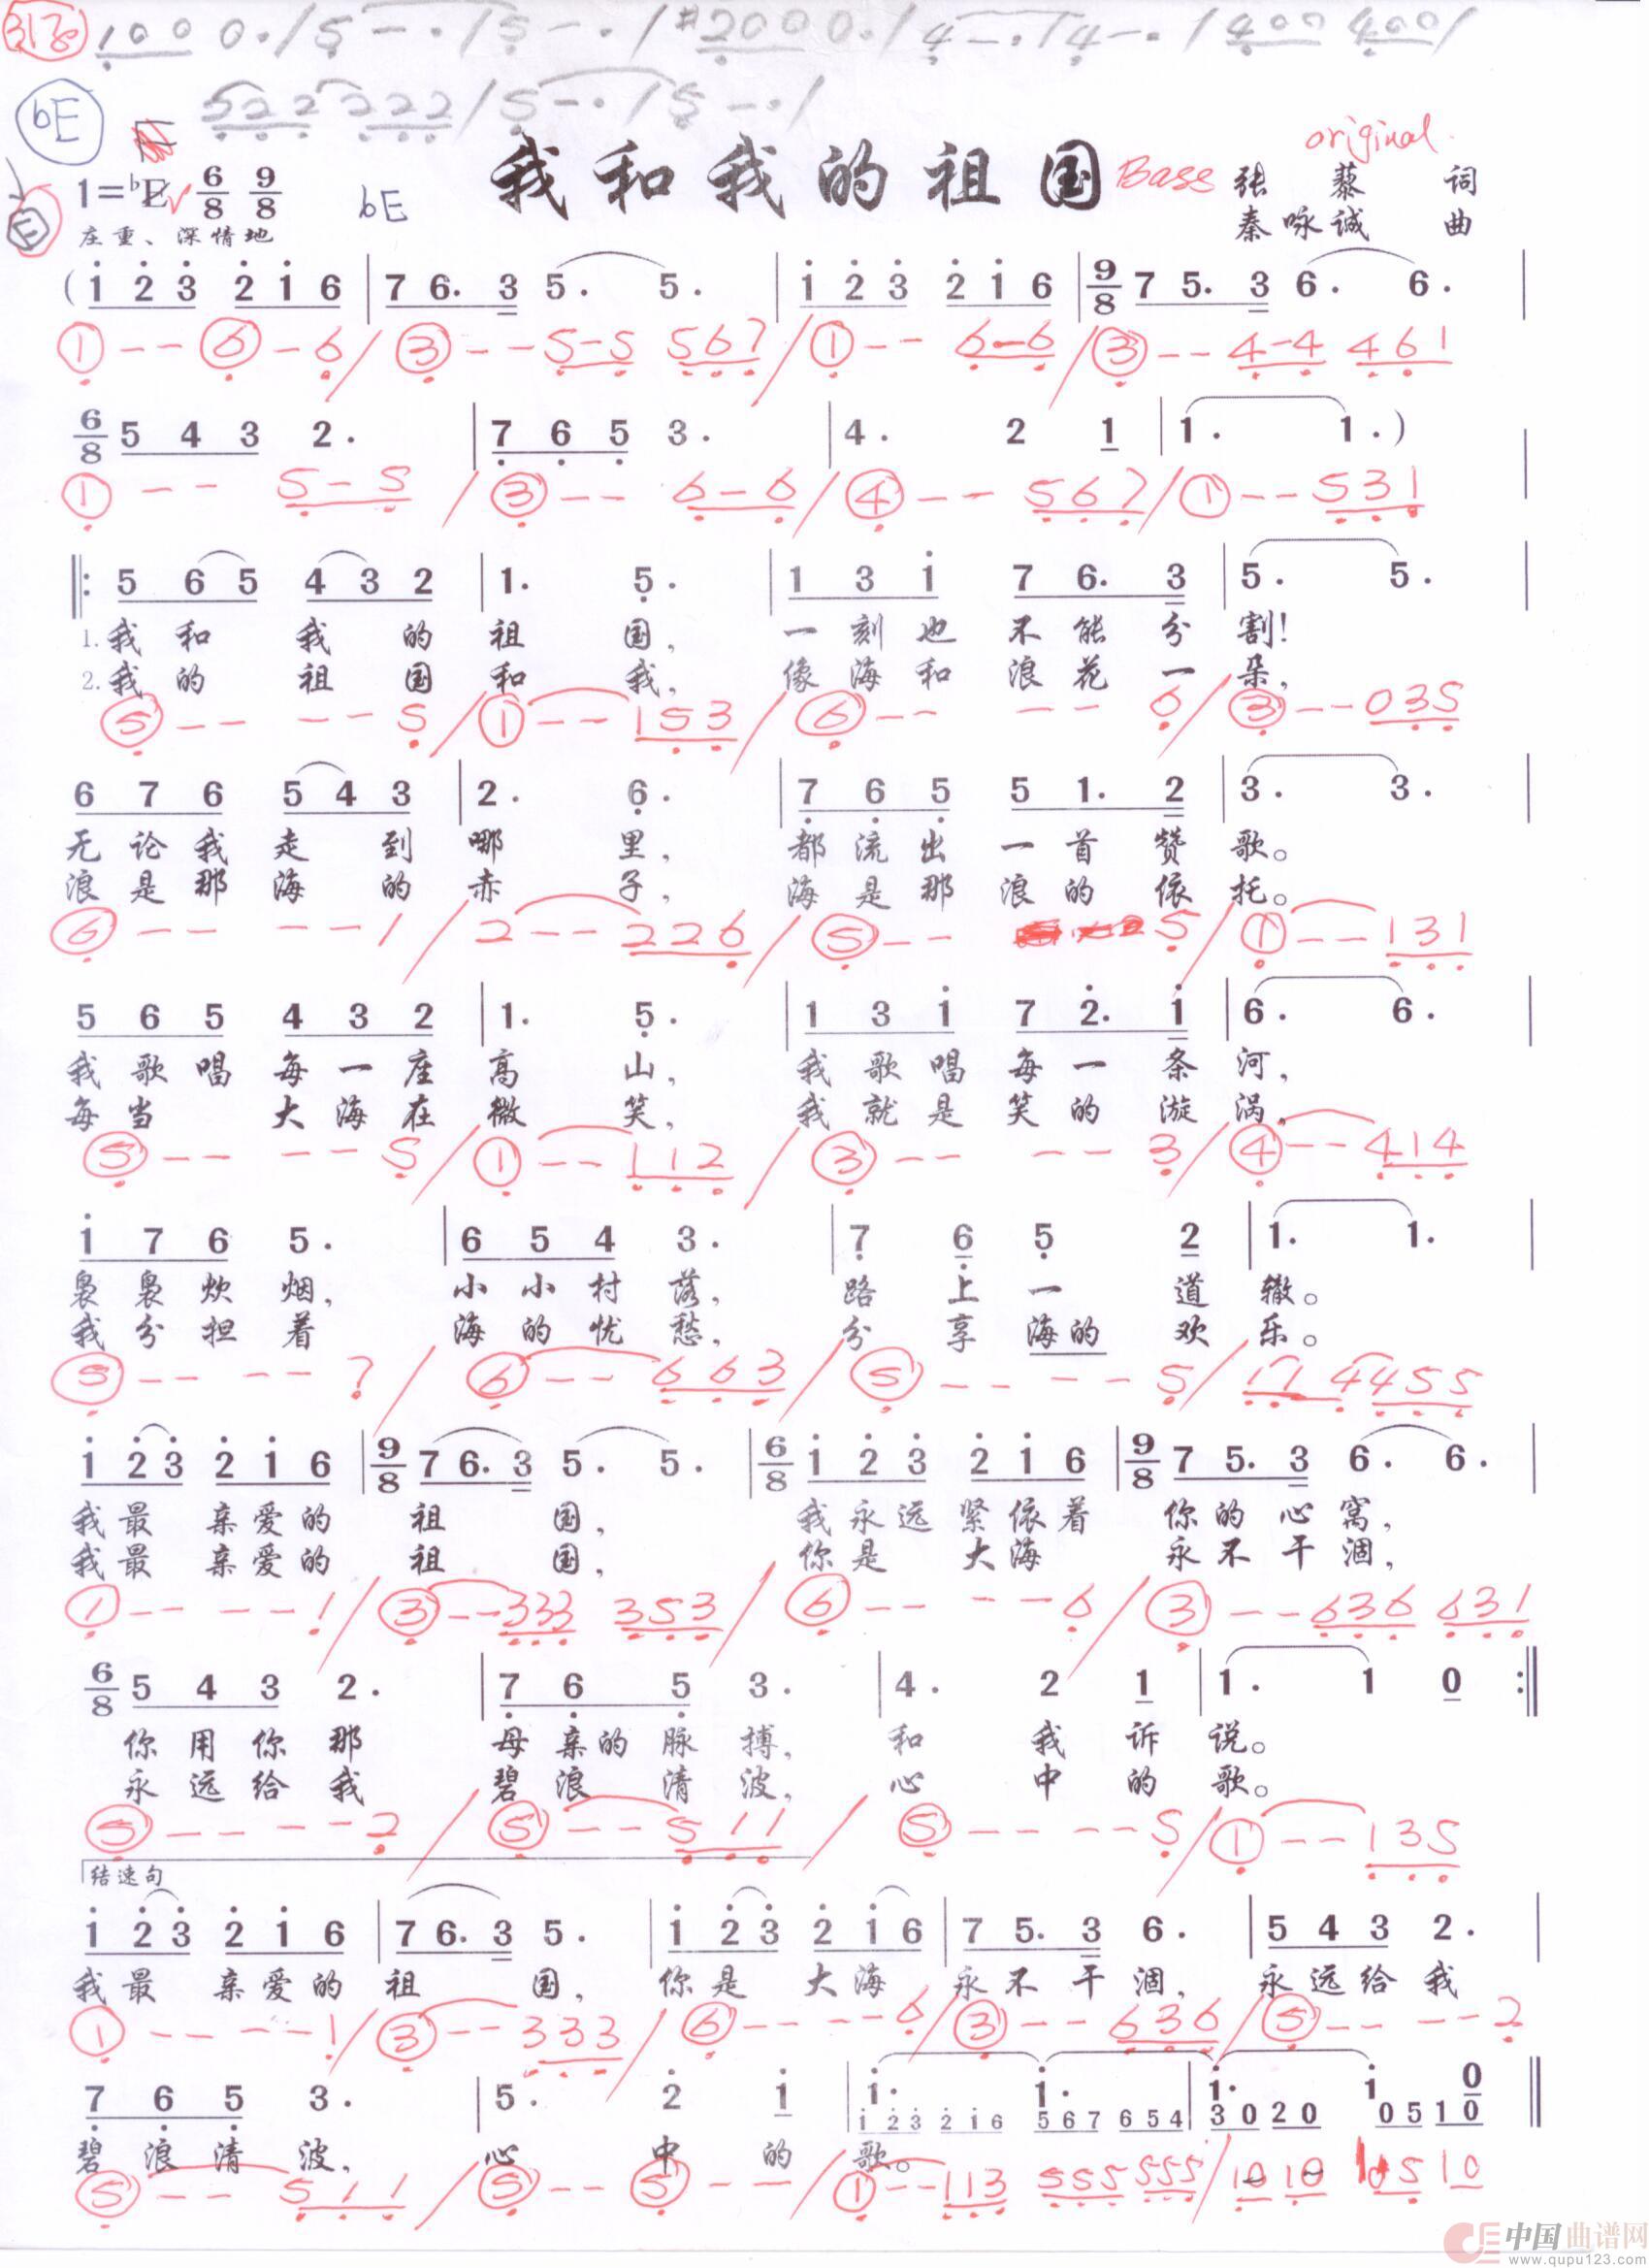 318
1000 0·/5-·/5-·/#2000 0·/4-·/4-·/400 400/
bE
522 222/5-·/5-·/
我和我的祖国 Bass original
1=♭E 6/8 9/8 bE
E
张藜 词
秦咏诚 曲
庄重、深情地
(1̇ 2̇ 3̇ 2̇ 1̇ 6 | 7 6· 3 5· 5· | 1̇ 2̇ 3̇ 2̇ 1̇ 6 | 9/8 7 5· 3 6· 6· |
① - - ⑥ - 6 / ③ - - 5-5 567 / ① - - 6-6 / ③ - - 4-4 461
6/8 5 4 3 2· | 7̣ 6̣ 5̣ 3· | 4· 2 1 | 1· 1·)|
① - - 5-5 / ③ - - 6-6 / ④ - - 567 / ① - - 531
‖: 5 6 5 4 3 2 | 1· 5̣· | 1 3 1̇ 7 6· 3 | 5· 5· |
1.我和我的祖国,一刻也不能分割!
2.我的祖国和我,像海和浪花一朵,
⑤ - - - - 5 / ① - - 153 / ⑥ - - - - 6 / ③ - - 035
6 7 6 5 4 3 | 2· 6̣· | 7̣ 6̣ 5̣ 5 1· 2 | 3· 3· |
无论我走到哪里,都流出一首赞歌。
浪是那海的赤子,海是那浪的依托。
⑥ - - - - 1 / 2 - - 226 / ⑤ - - 5 / ① - - 131
5 6 5 4 3 2 | 1· 5̣· | 1 3 1̇ 7 2̇· 1̇ | 6· 6· |
我歌唱每一座高山,我歌唱每一条河,
每当大海在微笑,我就是笑的漩涡,
⑤ - - - - 5 / ① - - 112 / ③ - - - - 3 / ④ - - 414
1̇ 7 6 5· | 6 5 4 3· | 7̣ 6̣ 5̣ 2 | 1· 1· |
袅袅炊烟,小小村落,路上一道辙。
我分担着海的忧愁,分享海的欢乐。
⑤ - - - - 7 / ⑥ - - 663 / ⑤ - - - - 5 / 11 4455
1̇ 2̇ 3̇ 2̇ 1̇ 6 | 9/8 7 6· 3 5· 5· | 6/8 1̇ 2̇ 3̇ 2̇ 1̇ 6 | 9/8 7 5· 3 6· 6· |
我最亲爱的祖国,我永远紧依着你的心窝,
我最亲爱的祖国,你是大海永不干涸,
① - - - - 1 / ③ - - 333 353 / ⑥ - - - - 6 / ③ - - 636 631
6/8 5 4 3 2· | 7̣ 6̣ 5̣ 3· | 4· 2 1 | 1· 1 0 :‖
你用你那母亲的脉搏,和我诉说。
永远给我碧浪清波,心中的歌。
⑤ - - - - 2 / ⑤ - - 511 / ⑤ - - - - 5 / ① - - 135
结速句
1̇ 2̇ 3̇ 2̇ 1̇ 6 | 7 6· 3 5· | 1̇ 2̇ 3̇ 2̇ 1̇ 6 | 7 5· 3 6· | 5 4 3 2· |
我最亲爱的祖国,你是大海永不干涸,永远给我
① - - - - 1 / ③ - - 333 / ⑥ - - - - 6 / ③ - - 636 / ⑤ - - - - 2
7̣ 6̣ 5̣ 3· | 5· 2̇ 1̇ | 1̇· 1̇· | 1̇· 1̇ 0 ‖
1̇ 2̇ 3̇ 2̇ 1̇ 6 5 6 7 6 5 4 3 0 2 0 0 5 1 0
碧浪清波,心中的歌。
⑤ - - 511 / ⑤ - - ⑤ - - / ① - - 113 555 555 / 10 10 10 5 10
中国曲谱网
www.qupu123.com